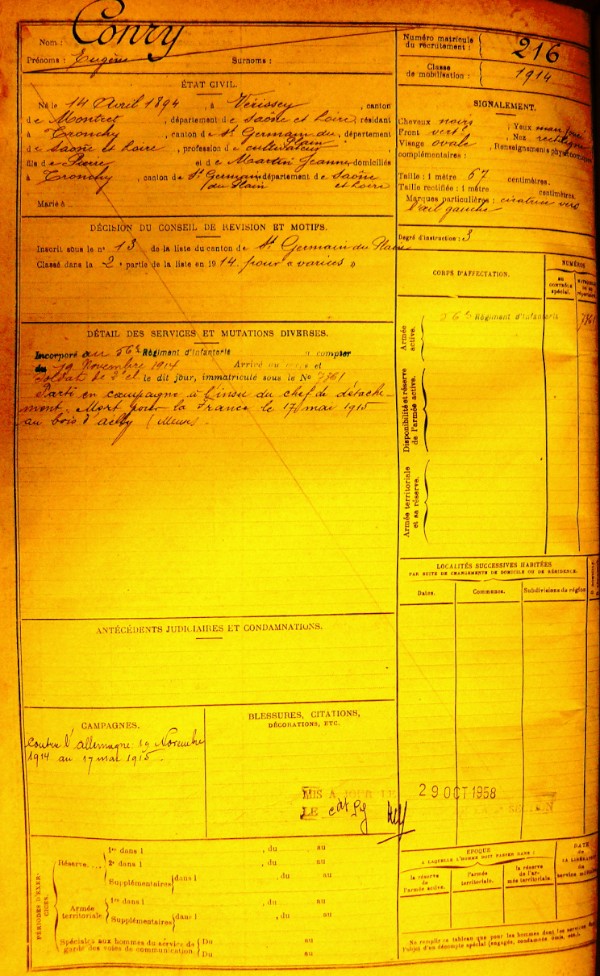 Nom : Conry
Prénoms : Eugène Surnoms :
Numéro matricule du recrutement : 216
Classe de mobilisation : 1914
ÉTAT CIVIL.
Né le 14 Avril 1894, à Vérissey, canton
de Montret, département de Saône et Loire, résidant
à Tronchy, canton de St Germain du Plain, département
de Saône et Loire, profession de cultivateur
fils de Pierre et de Martin Jeanne domiciliés
à Tronchy, canton de St Germain du Plain département de Saône et Loire
Marié à
SIGNALEMENT.
Cheveux noirs Yeux
Front vert Nez rectiligne
Visage ovale Renseignements physionomiques
complémentaires :
Taille : 1 mètre 67 centimètres.
Taille rectifiée : 1 mètre centimètres.
Marques particulières : cicatrice
l'œil gauche
Degré d'instruction : 3
DÉCISION DU CONSEIL DE RÉVISION ET MOTIFS.
Inscrit sous le n° 13 de la liste du canton de St Germain du Plain
Classé dans la 2e partie de la liste en 1914 pour « varices »
CORPS D'AFFECTATION.
NUMÉROS
au contrôle spécial.
Armée active.
56e Régiment d'Infanterie
Disponibilité et réserve de l'armée active.
Armée territoriale et sa réserve.
DÉTAIL DES SERVICES ET MUTATIONS DIVERSES.
Incorporé au 56e Régiment d'Infanterie à compter
du 19 Novembre 1914 Arrivé au corps et
Soldat de 2e cl. le dit jour, immatriculé sous le No 7361
Parti en campagne à l'insu du chef de détache-
ment. Mort pour la France le 17 mai 1915
au bois d'ailly (Meuse)
LOCALITÉS SUCCESSIVES HABITÉES
PAR SUITE DE CHANGEMENTS DE DOMICILE OU DE RÉSIDENCE.
Dates. Communes. Subdivisions de région
ANTÉCÉDENTS JUDICIAIRES ET CONDAMNATIONS.
CAMPAGNES.
Contre l'allemagne 19 Novembre
1914 au 17 mai 1915.
BLESSURES, CITATIONS,
DÉCORATIONS, ETC.
MIS A JOUR LE 29 OCT 1958
LE
PÉRIODES D'EXERCICES.
Réserve
1re dans l , du au
2e dans l , du au
Supplémentaires dans l , du au
Armée territoriale
1re dans l , du au
Supplémentaires dans l , du au
Spéciales aux hommes du service de garde des voies de communication
Du au
Du au
ÉPOQUE
À LAQUELLE L'HOMME DOIT PASSER DANS :
la réserve de l'armée active.
l'armée territoriale.
la réserve de l'armée territoriale.
DATE de LA LIBÉRATION du service
Ne remplir ce tableau que pour les hommes dont les services
l'objet d'un décompte spécial (engagés, condamnés, omis, etc.)